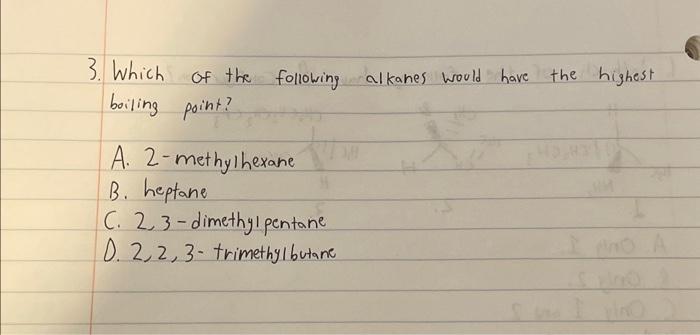 3. Which of the following alkanes would have the highest
boiling point?
A. 2-methylhexane
B. heptane
C. 2,3-dimethylpentane
D. 2,2,3-trimethylbutane